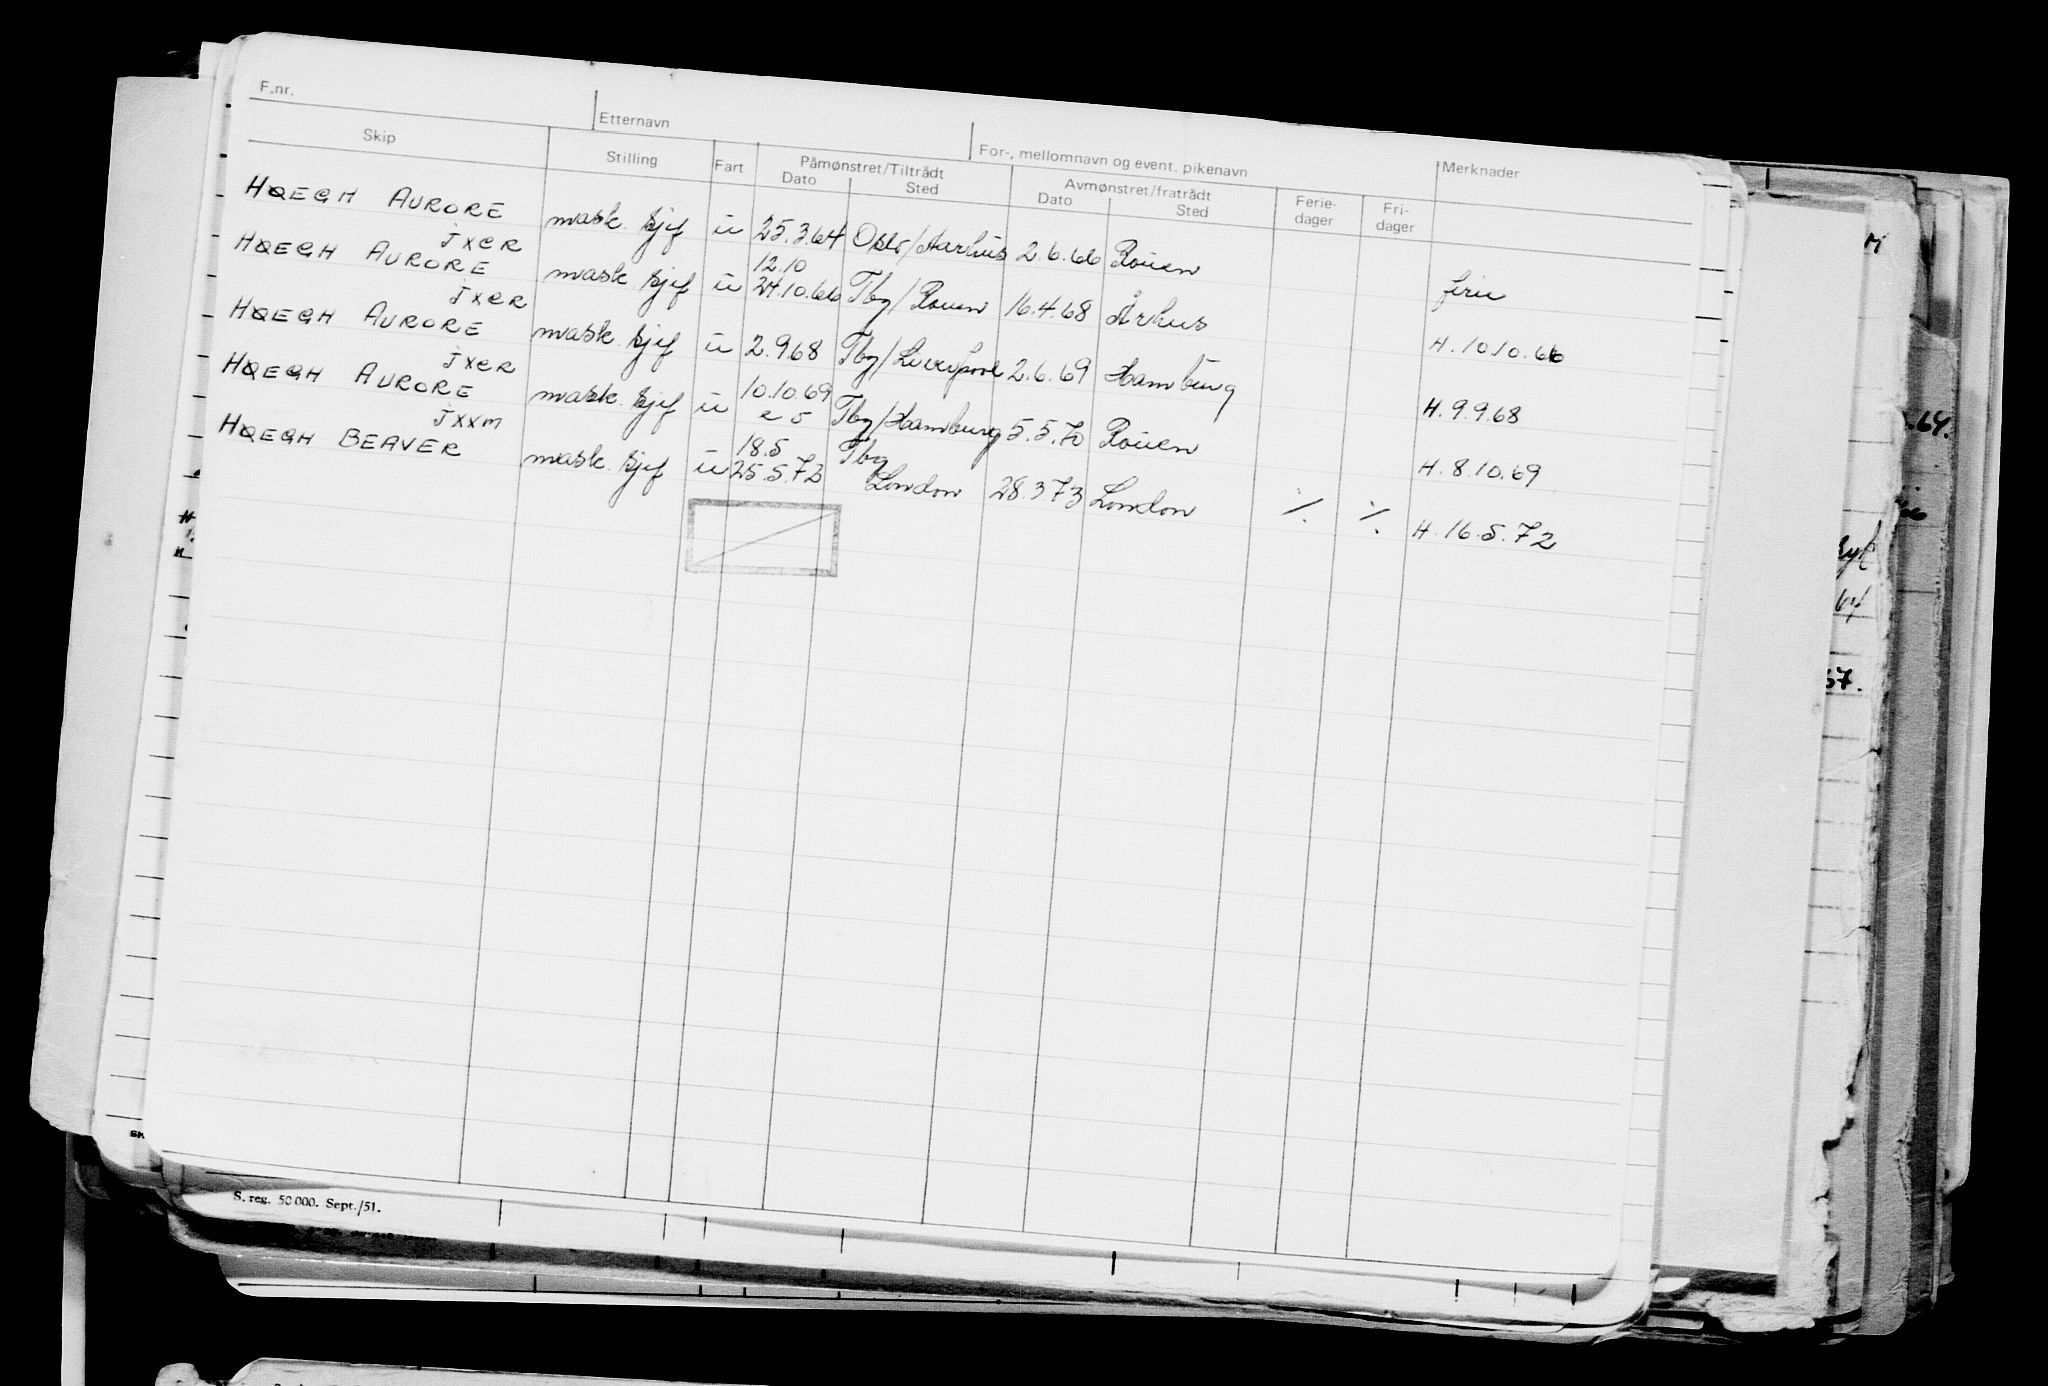 F.nr.
Etternavn
For-, mellomnavn og event. pikenavn
Skip
Stilling
Fart
Påmønstret/Tiltrådt
Dato
Sted
Avmønstret/fratrådt
Dato
Sted
Ferie-
dager
Fri-
dager
Merknader
HØEGH AURORE mask. sjef u 25.3.64 Oslo/Aarhus 2.6.66 Rouen ferie
JXCR 12.10
HØEGH AURORE mask. sjef u 24.10.66 Tbg/Rouen 16.4.68 Århus H. 10.10.66
JXCR
HØEGH AURORE mask. sjef u 2.9.68 Tbg/Liverpool 2.6.69 Hamburg H. 9.9.68
JXCR 10.10.69
HØEGH AURORE mask. sjef u Tbg/Hamburg 5.5.70 Rouen H. 8.10.69
JXXM 18.5 Tbg
HØEGH BEAVER mask. sjef u 25.5.72 London 28.3.73 London ./. ./. H. 16.5.72
S. reg. 50 000. Sept./51.